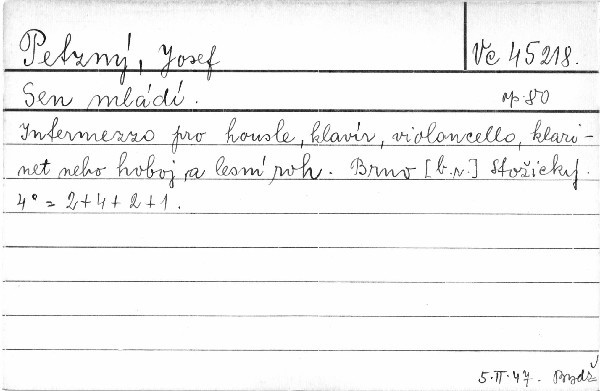 Petzný, Josef
Vc 45218.
Sen mládí.
op. 80
Intermezzo pro housle, klavír, violoncello, klari-
net nebo hoboj a lesní roh. Brno [b.r.] Stožický.
4° = 2+4+2+1.
5.II.47.